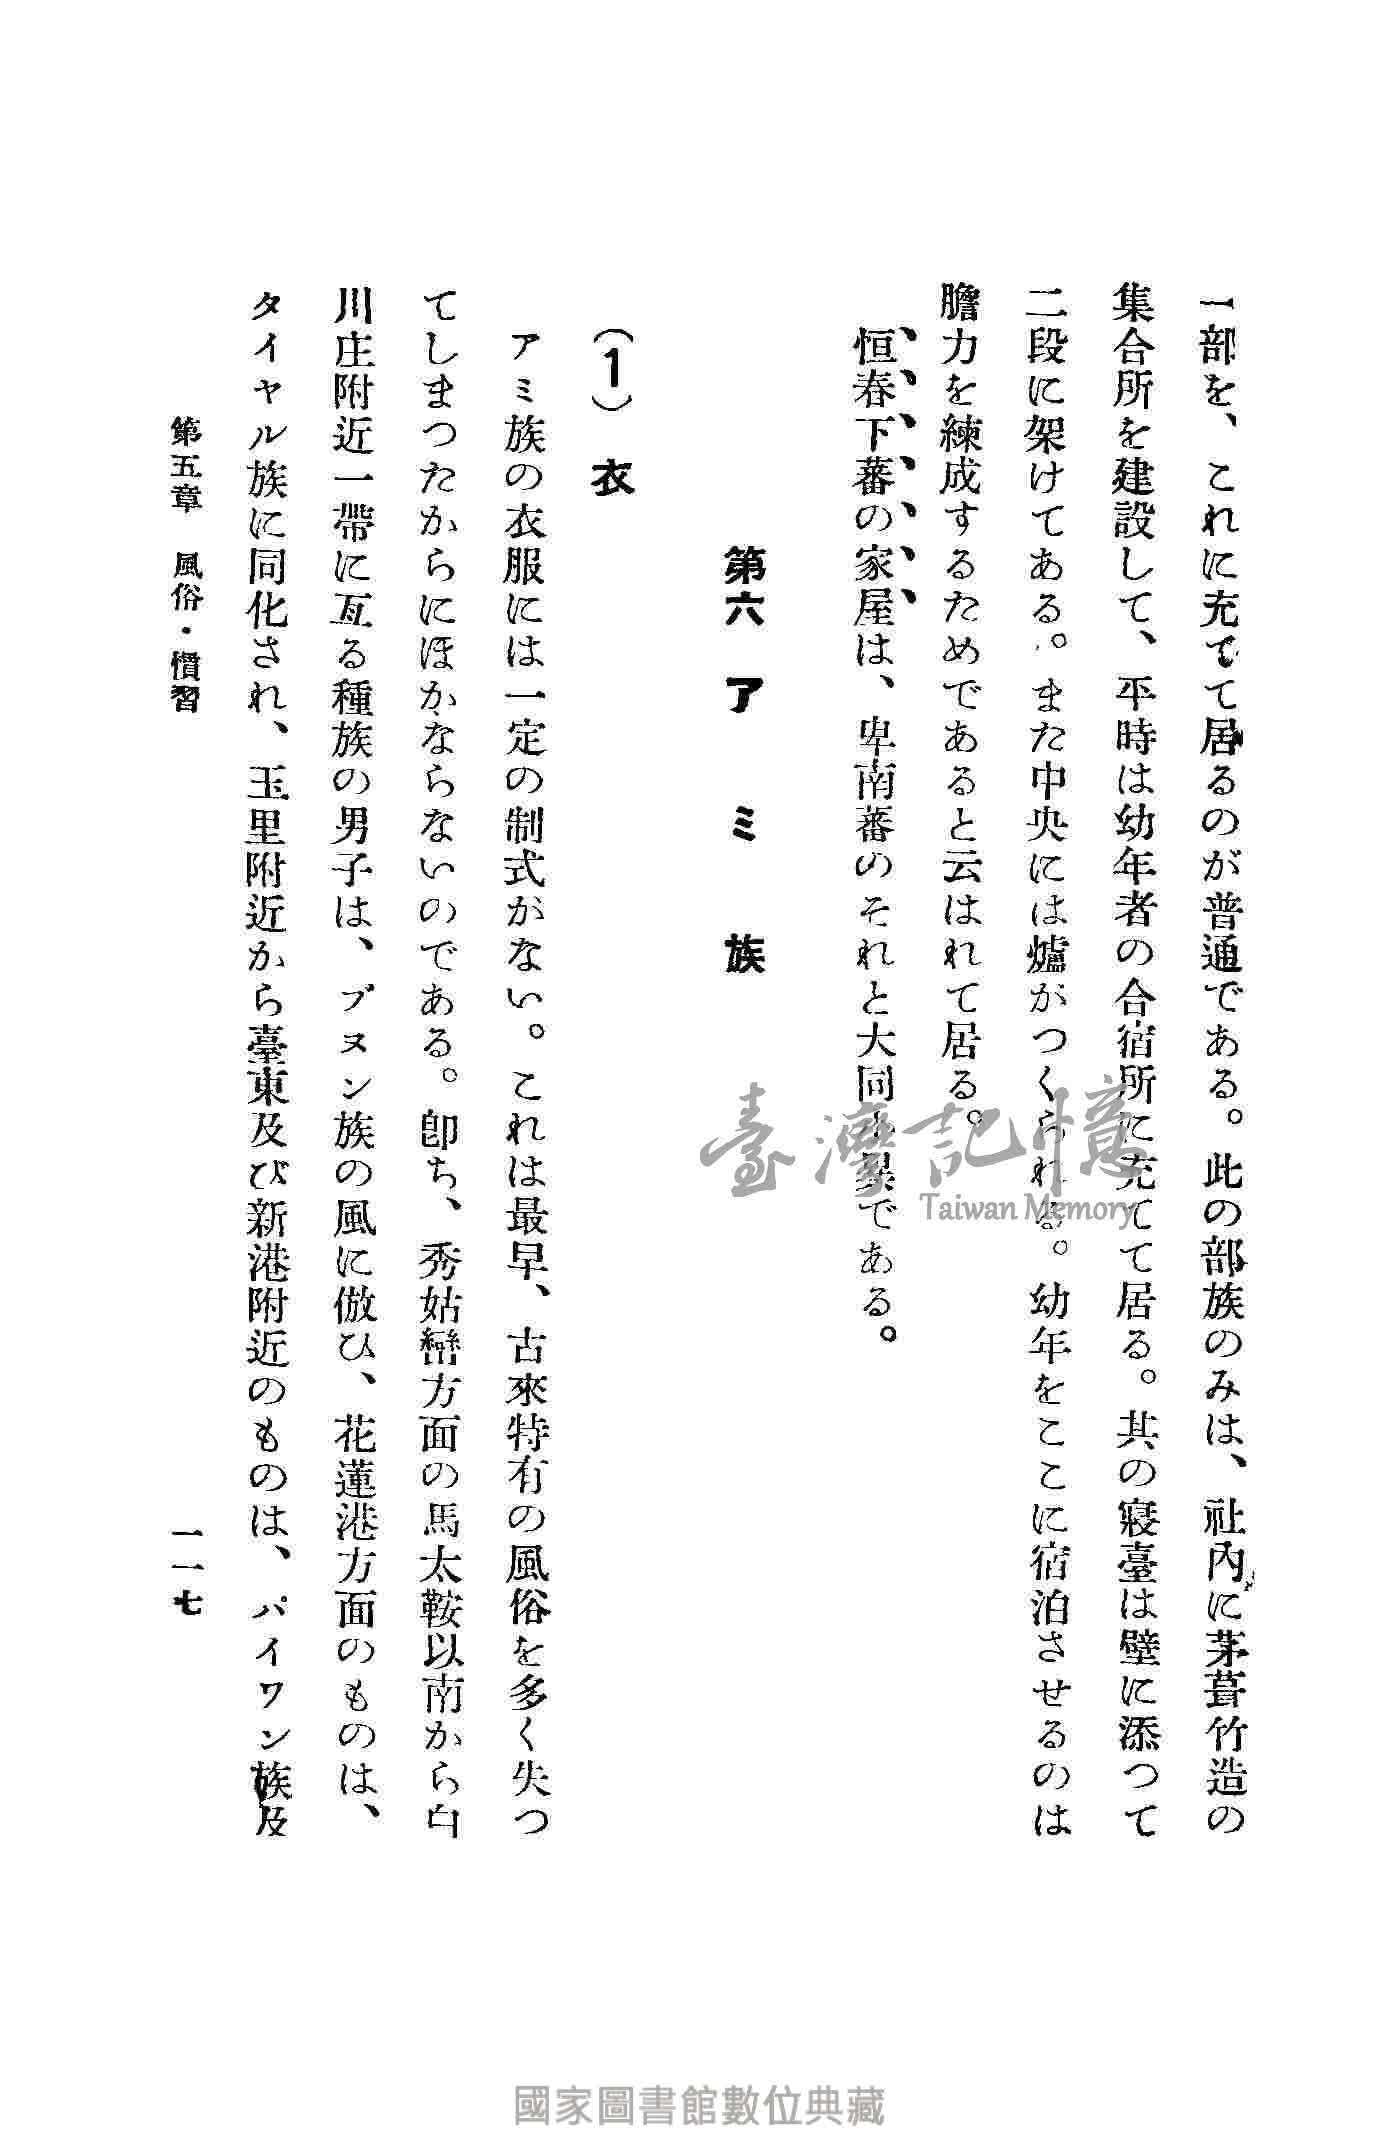 一部を、これに充てて居るのが普通である。此の部族のみは、社內に茅葺竹造の
集合所を建設して、平時は幼年者の合宿所に充てて居る。其の寢臺は壁に添つて
二段に架けてある。また中央には爐がつくられる。幼年をここに宿泊させるのは
膽力を練成するためであると云はれて居る。
恒春下蕃の家屋は、卑南蕃のそれと大同小異である。
第六 アミ族
(1) 衣
アミ族の衣服には一定の制式がない。これは最早、古來特有の風俗を多く失つ
てしまつたからにほかならないのである。卽ち、秀姑巒方面の馬太鞍以南から白
川庄附近一帶に亙る種族の男子は、ブヌン族の風に倣ひ、花蓮港方面のものは、
タイヤル族に同化され、玉里附近から臺東及び新港附近のものは、パイワン族及
第五章 風俗・慣習
一一七
臺灣記憶
Taiwan Memory
國家圖書館數位典藏